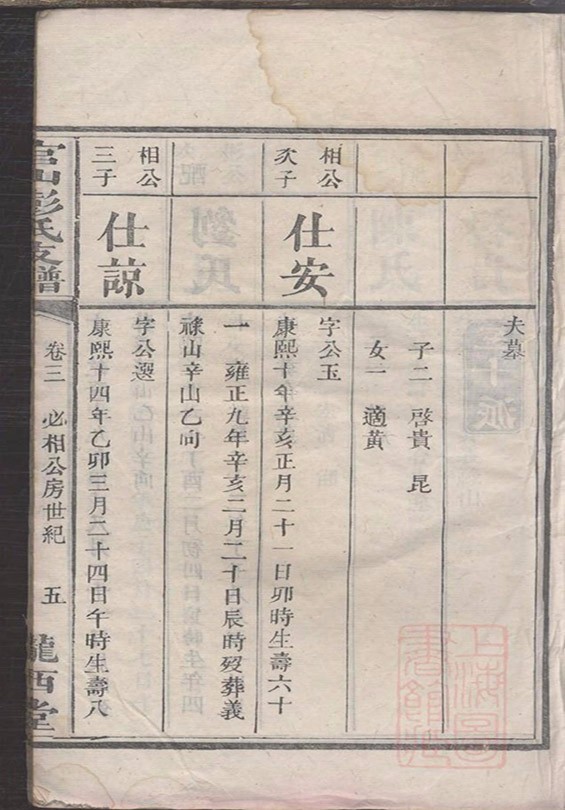 夫墓
子二 啓貴 昆
女一 適黃
相公
次子
仕安
字公玉
康熙十年辛亥正月二十一日卯時生壽六十
一 雍正九年辛亥二月二十日辰時歿葬義
祿山辛山乙向
相公
三子
仕諒
字公選
康熙十四年乙卯三月二十四日午時生壽八
官山彭氏支譜
卷三 必相公房世紀 五
隴西堂
上海圖
書館